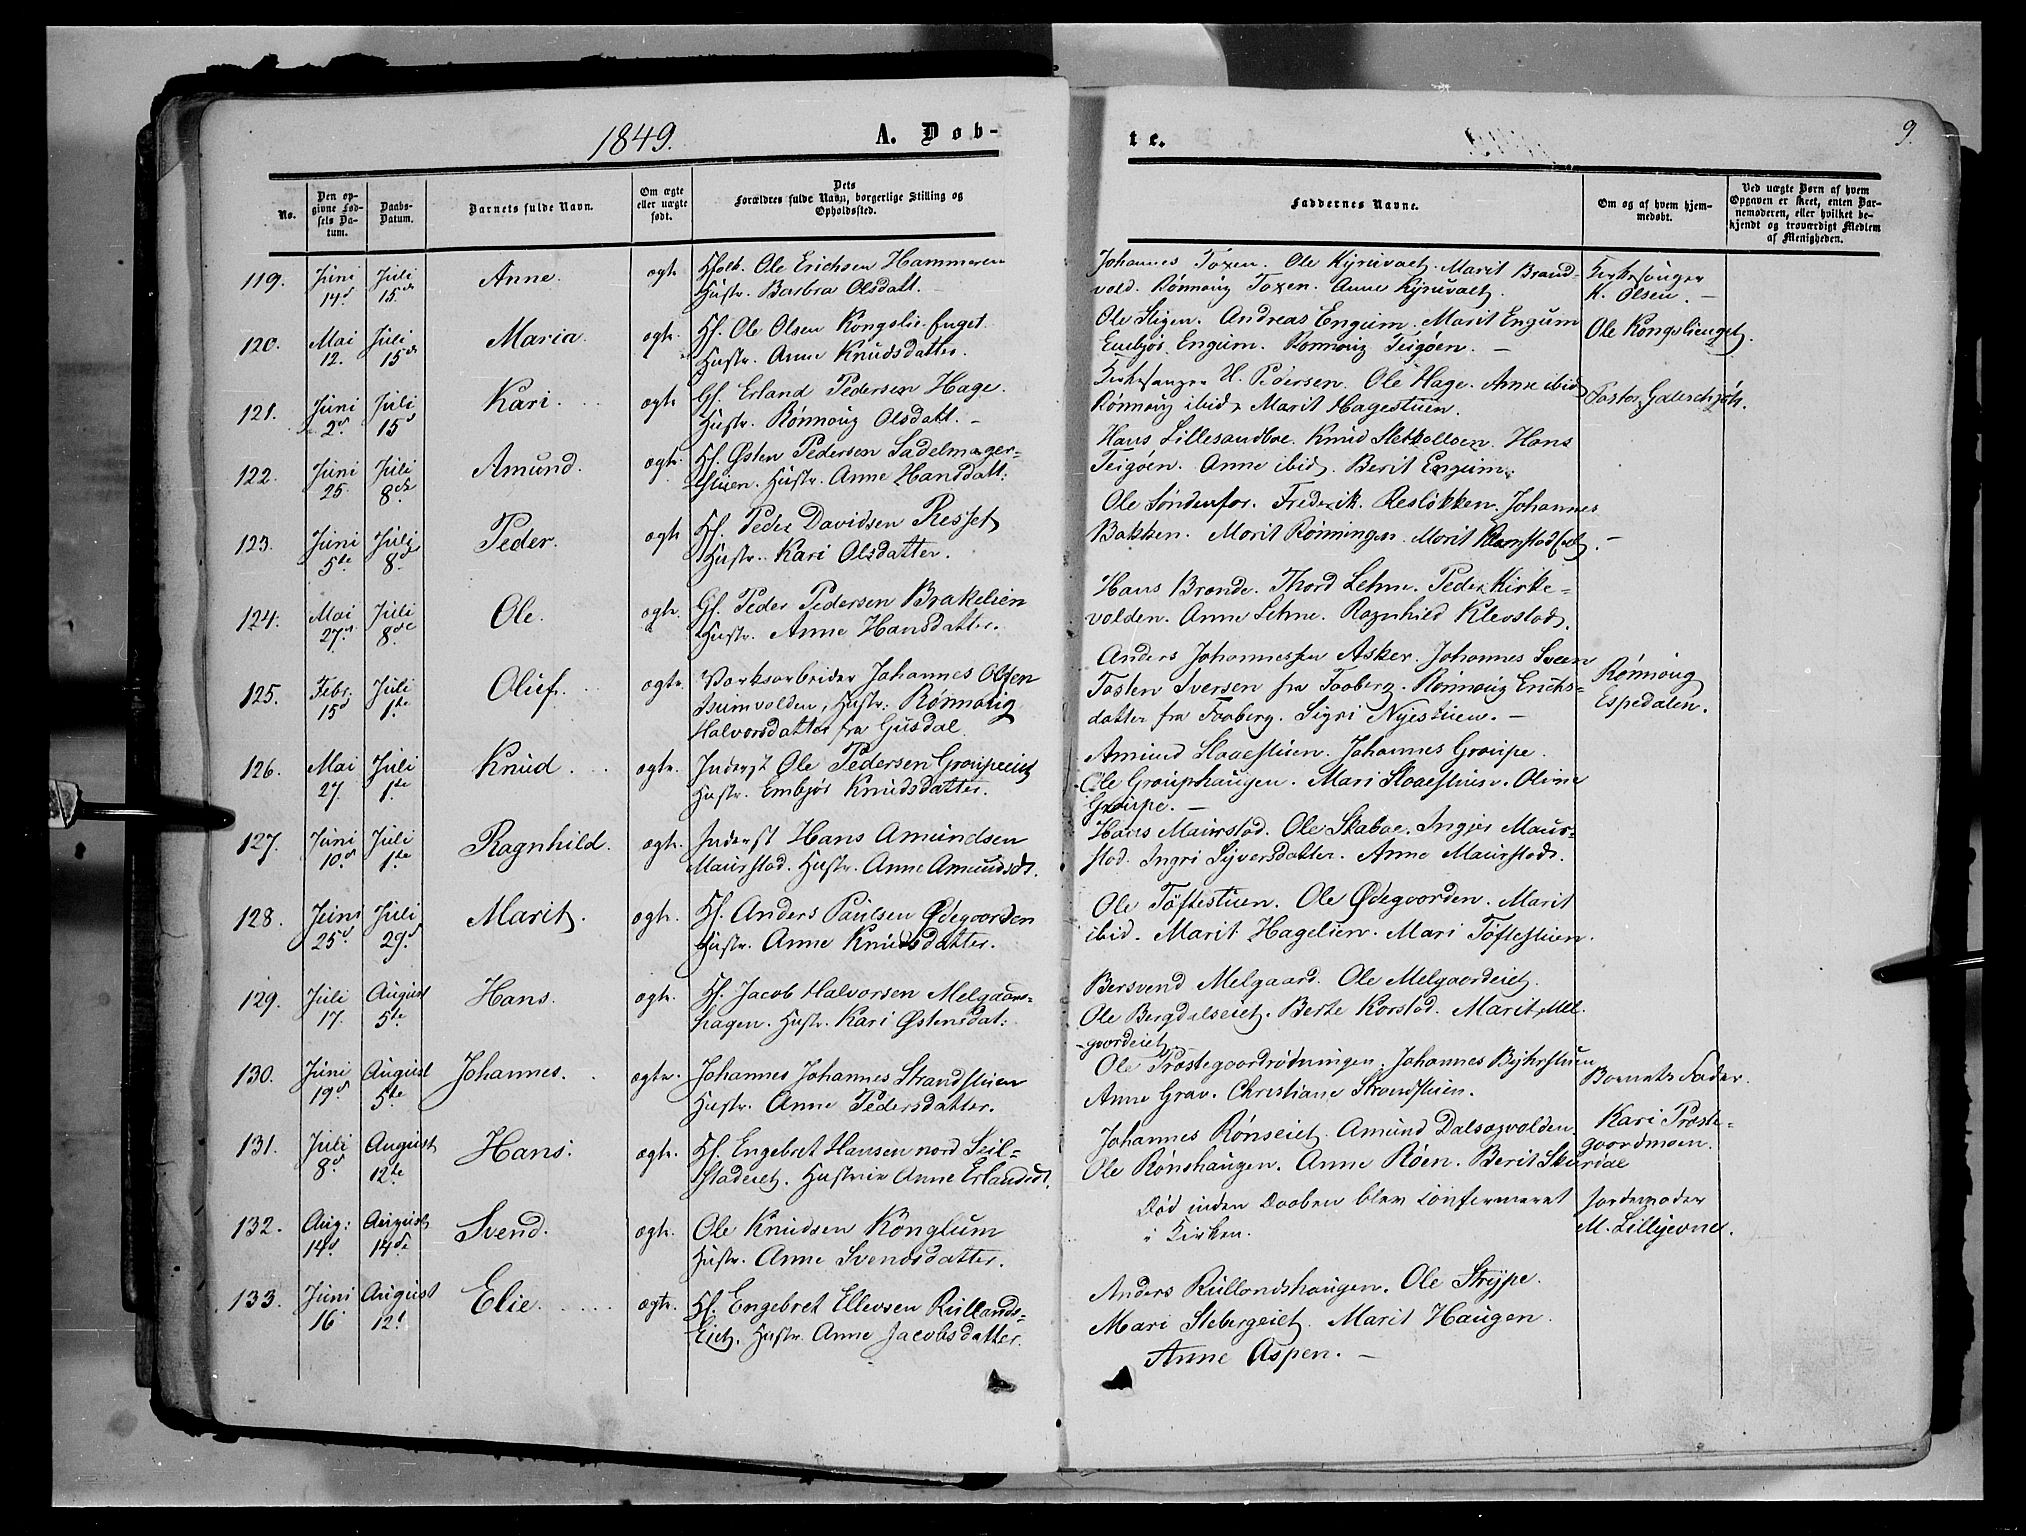 1849.
A. Døb-
te.
9.
No.
Den op-
givne Fød-
sels Da-
tum.
Daabs-
Datum.
Barnets fulde Navn.
Om ægte
eller uægte
født.
Dets
Forældres fulde Navn, borgerlige Stilling og
Opholdssted.
Faddernes Navne.
Om og af hvem hjem-
medøbt.
Ved uægte Børn af hvem
Opgaven er skeet, enten Bar-
nemoderen, eller hvilket be-
kjendt og troværdigt Medlem
af Menigheden.
119. Juni 14d Juli 15de Anne. ægte Ole Erichsen Hammeren
Hustr. Barbra Olsdatt.
Johannes Toxen. Ole Kyruvæt. Marit Brand-
vold. Rønnoug Toxen. Anne Kyruvæt.
Kirkesanger
K. Olsen.
120. Mai 12. Juli 15de Maria. ægte. Hf. Ole Olsen Kongslie-
Hustr. Anne Knudsdatter.
Ole Stigen. Andreas Engum. Marit Engum
Embjør Engum. Rønnoug Teigøen.
Ole Kongslienget.
121. Juni 2d Juli 15d Kari. ægte Gf. Erland Pedersen Hage.
Hustr. Rønnoug Olsdatt.
Kirkesanger H. Pedersen. Ole Hage. Anne ibid
Rønnoug ibid. Marit Hagestuen.
Pastor Galschjøt.
122. Juni 25. Juli 8de Amund. ægte. Hf. Østen Pedersen Sadelmager-
stuen. Hustr. Anne Hansdatt:
Hans Lillesandboe. Knud Hans
Teigøen. Anne ibid. Berit Engum.
123. Juni 5te Juli 8d Peder. ægte Hf. Peder Davidsen Resset
Hustr. Kari Olsdatter.
Ole Søndenfor. Frederik Resløkken. Johannes
Bakken. Marit Rønningen. Marit
124. Mai 27d Juli 8de Ole. ægte. Gf. Peder Pedersen Brakelien
Hustr. Anne Hansdatter.
Hans Brande. Thord Lehne. Peder Kirke-
volden. Anne Lehne. Ragnhild Klevstad.
125. Febr. 15d Juli 1te Oluf. ægte. Værksarbeider Johannes Olsen
Hustr: Rønnoug
Halvorsdatter fra Gusdal.
Anders Johannessen Asker. Johannes Sveen
Tosten Iversen fra Faaberg. Rønnoug Erichs-
datter fra Faaberg. Sigri Nyestuen.
Rønnoug
Espedalen.
126. Mai 27. Juli 1te Knud. ægte. Inderst Ole Pedersen Groupeeiet
Hustr. Embjør Knudsdatter.
Amund Slaaestuen. Johannes Groupe.
Ole Groupshaugen. Mari Slaaestuen. Oline
Groupe.
127. Juni 10d Juli 1te Ragnhild. ægte. Inderst Hans Amundsen
Maurstad. Hustr. Anne Amundsdt.
Hans Maurstad. Ole Skaboe. Ingjer Maur-
stad. Ingri Syversdatter. Anne Maurstad.
128. Juni 25d Juli 29d Marit. ægte. Hf. Anders Paulsen Ødegaarden
Hustr. Anne Knudsdatter.
Ole Tøftestuen. Ole Ødegaarden. Marit
ibid. Marit Hagelien. Mari Tøftestuen.
129. Juli 17. August 5te Hans. ægte. Hf. Jacob Halvorsen Melgaars-
hagen. Hustr. Kari Østensdat:
Bersvend Melgaard. Ole Melgaardeiet.
Ole Bergdalseiet. Berte Korstad. Marit Mel-
gaardeiet.
130. Juni 19d August 5te Johannes. ægte. Johannes Johannes Strandstuen
Hustr. Anne Pedersdatter.
Ole Præstegaardrødningen. Johannes
Anne Grav. Christiane Strandstuen.
Barnets Fader.
131. Juli 8d August 12te Hans. ægte. Hf. Engebret Hansen nord Seil-
stadeiet. Hustrue Anne Erlandsdt.
Johannes Rønseiet. Amund Dalsegvolden
Ole Rønshaugen. Anne Røen. Berit Skurdal
Kari Præste-
gaardmoen.
132. Aug: 14d August 14de Svend. ægte. Ole Knudsen Kønglum
Hustr. Anne Svendsdatter.
Død inden Daaben blev confirmeret
i Kirken.
Jordemoder
M. Lillijevne.
133. Juni 16 August 12t Elie. ægte. Hf. Engebret Ellevsen Rullands-
Eiet. Hustr. Anne Jacobsdatter.
Anders Rullandshaugen. Ole Strype.
Mari Stebergeiet. Marit Haugen.
Anne Aspen.